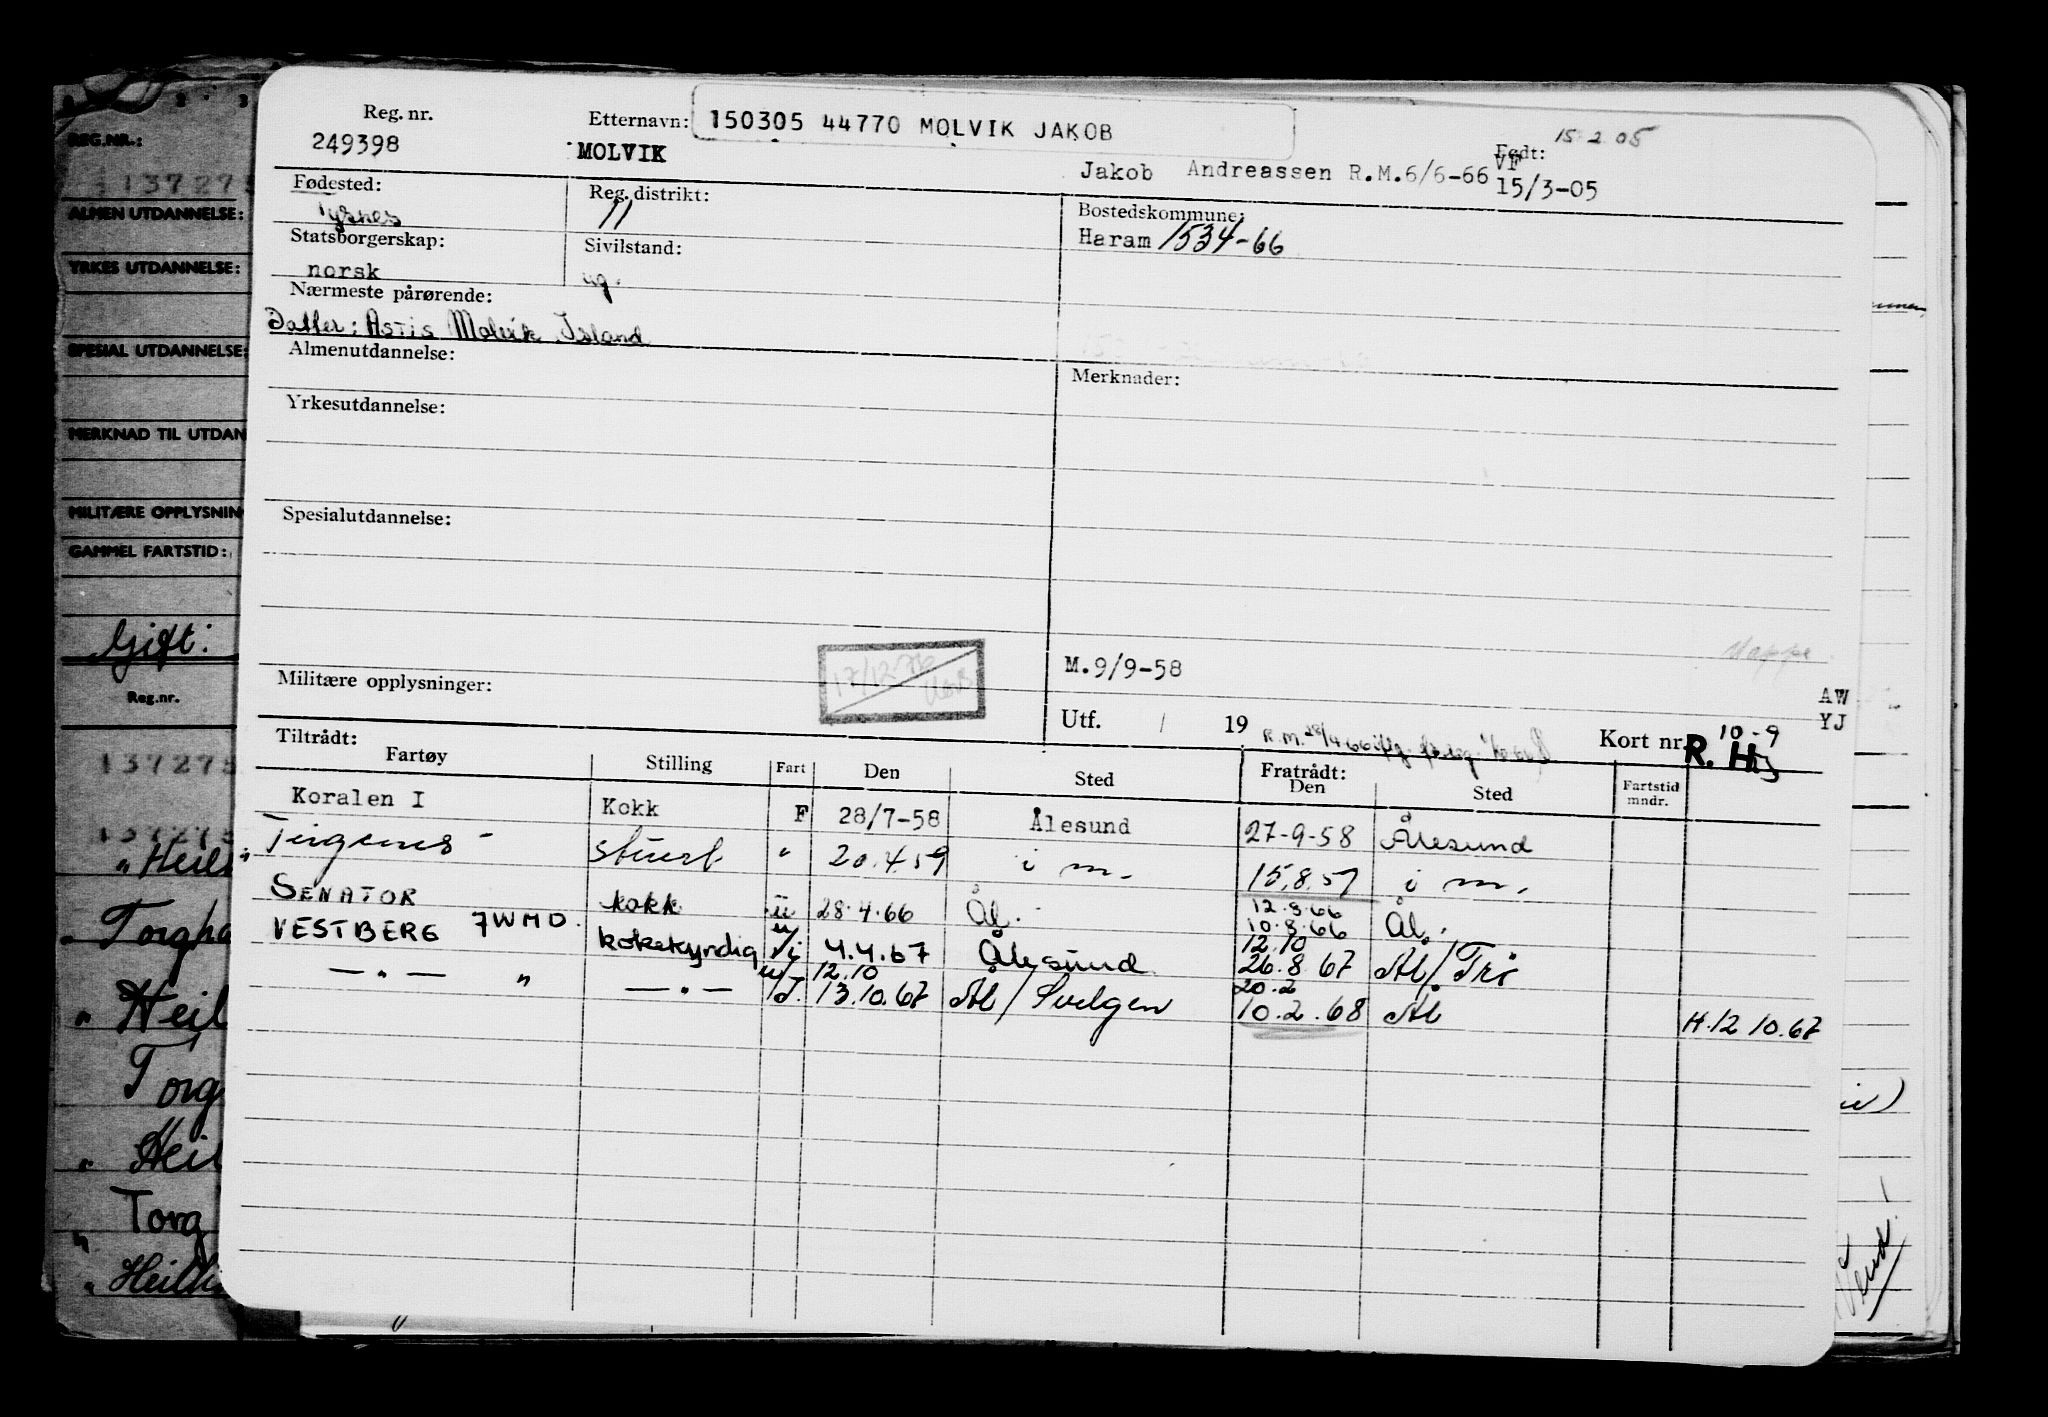 Reg. nr. Etternavn: 150305 44770 MOLVIK JAKOB Født: 15 2 05
249398 MOLVIK Jakob Andreassen R.M.6/6-66 VF 15/3-05
Fødested: Reg. distrikt: Bostedskommune:
Tysnes 11 Haram 1534-66
Statsborgerskap: Sivilstand:
norsk ug.
Nærmeste pårørende:
Datter: Astis Molvik Island
Almenutdannelse: Merknader:
Yrkesutdannelse:
Spesialutdannelse:
M.9/9-58 Mappe
Militære opplysninger: 17/12 AW
Utf. / 19 R.M. 28/4 66 Kort nr. 10-9 YJ
R. H
Tiltrådt: Fratrådt:
Fartøy Stilling Fart Den Sted Den Sted Fartstid mndr.
Koralen I Kokk F 28/7-58 Ålesund 27-9-58 Ålesund
stuert " 20.4.59 i m. 15.8.59 i m.
12.8.66
SENATOR kokk u 28.4.66 Ål. 10.8.66 Ål.
12.10
VESTBERG JWMD. kokekyndig u/i 4.4.67 Ålesund 26.8.67 Ål/Tri
12.10 20.2
— " — " — " — u/I. 13.10.67 Ål/Svelgen 10.2.68 Ål H.12 10.67
REG.NR.:
137275
ALMEN UTDANNELSE:
YRKES UTDANNELSE:
SPESIAL UTDANNELSE:
MERKNAD TIL UTDAN
MILITÆRE OPPLYSNIN
GAMMEL FARTSTID:
Gift:
Reg.nr.
137275
137275
" Heil
" Torgha
" Heil
Torg
" Heil
Torg
" Heilh